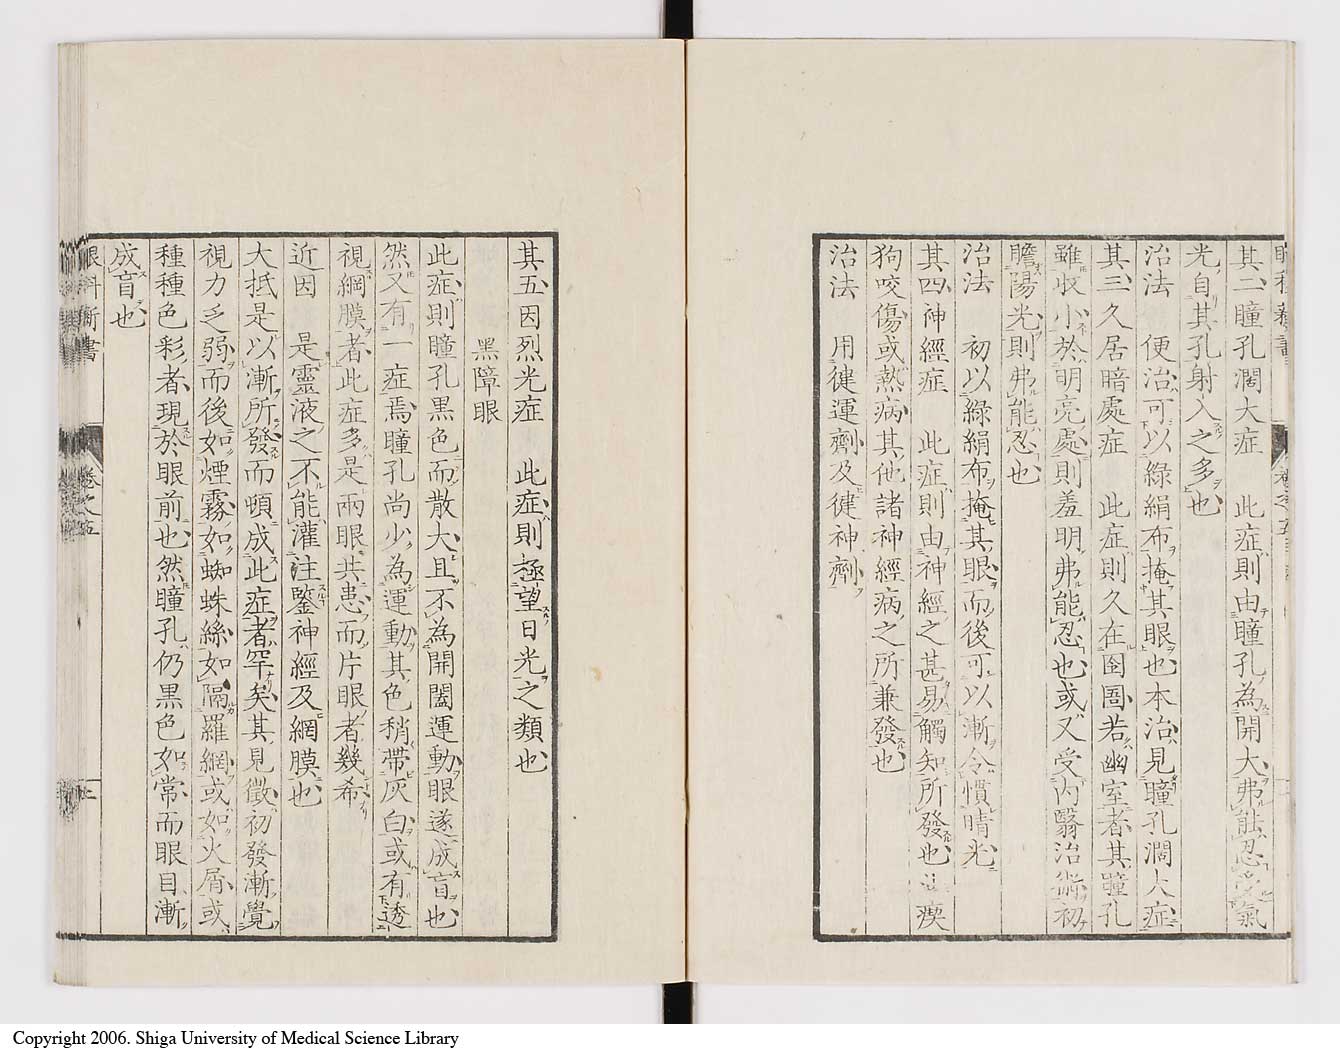 其二瞳孔濶大症　此症則由瞳孔為開大弗能忍受氣
光自其孔射入之多也
治法　便治可以綠絹布掩其眼也本治見瞳孔濶大症
其三久居暗處症　此症則久在囹圄若幽室者其瞳孔
雖收小於明亮處則羞明弗能忍也或又受內翳治術初
瞻陽光則弗能忍也
治法　初以綠絹布掩其眼而後可以漸令慣晴光
其四神經症　此症則由神經之甚易觸知所發也
狗咬傷或熱病其他諸神經病之所兼發也
治法　用健運劑及健神劑
其五因烈光症　此症則極望日光之類也
黑障眼
此症則瞳孔黑色而散大且不為開闔運動眼遂成盲也
然又有一症焉瞳孔尚少為運動其色稍帶灰白或有透
視網膜者此症多是兩眼共患而片眼者幾希
近因　是靈液之不能灌注鑒神經及網膜也
大抵是以漸所發而頓成此症者罕矣其見徵初發漸覺
視力乏弱而後如煙霧如蜘蛛絲如隔羅網或如火屑或
種種色彩者現於眼前也然瞳孔仍黑色如常而眼目漸
成盲也
眼科新書
卷之五
Copyright 2006. Shiga University of Medical Science Library